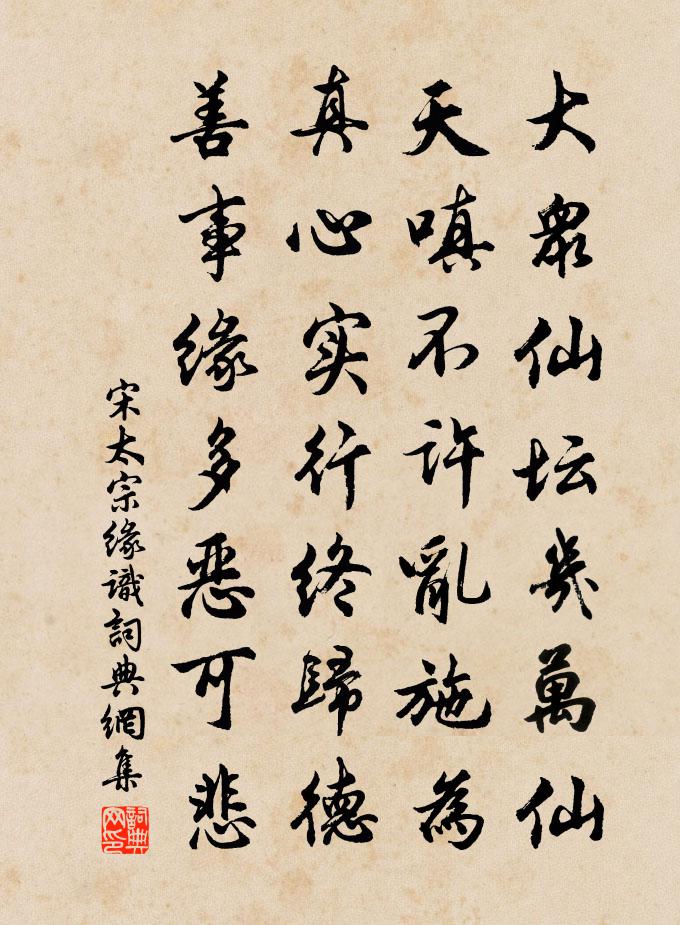 大眾仙坛幾萬仙
天嗔不许亂施為
真心实行终歸德
善事缘多恶可悲
宋太宗缘識詞典網集
詞典网印